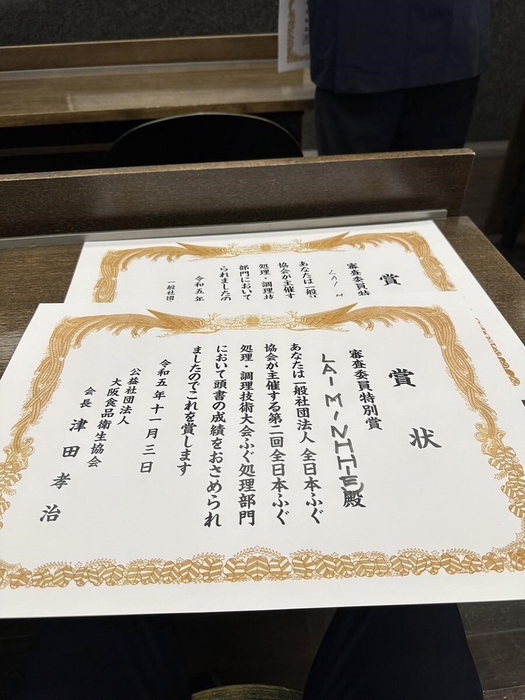 賞状
審査委員特別賞
LAI MINHHIE殿
あなたは一般社団法人 全日本ふぐ
協会が主催する第二回全日本ふぐ
処理・調理技術大会ふぐ処理部門
において頭書の成績をおさめられ
ましたのでこれを賞します
令和五年十一月三日
公益社団法人
大阪食品衛生協会
会長 津田孝治
賞
審査委員特
LAI M
あなたは一般
協会が主催す
処理・調理技
部門において
られましたの
令和五年
一般社団